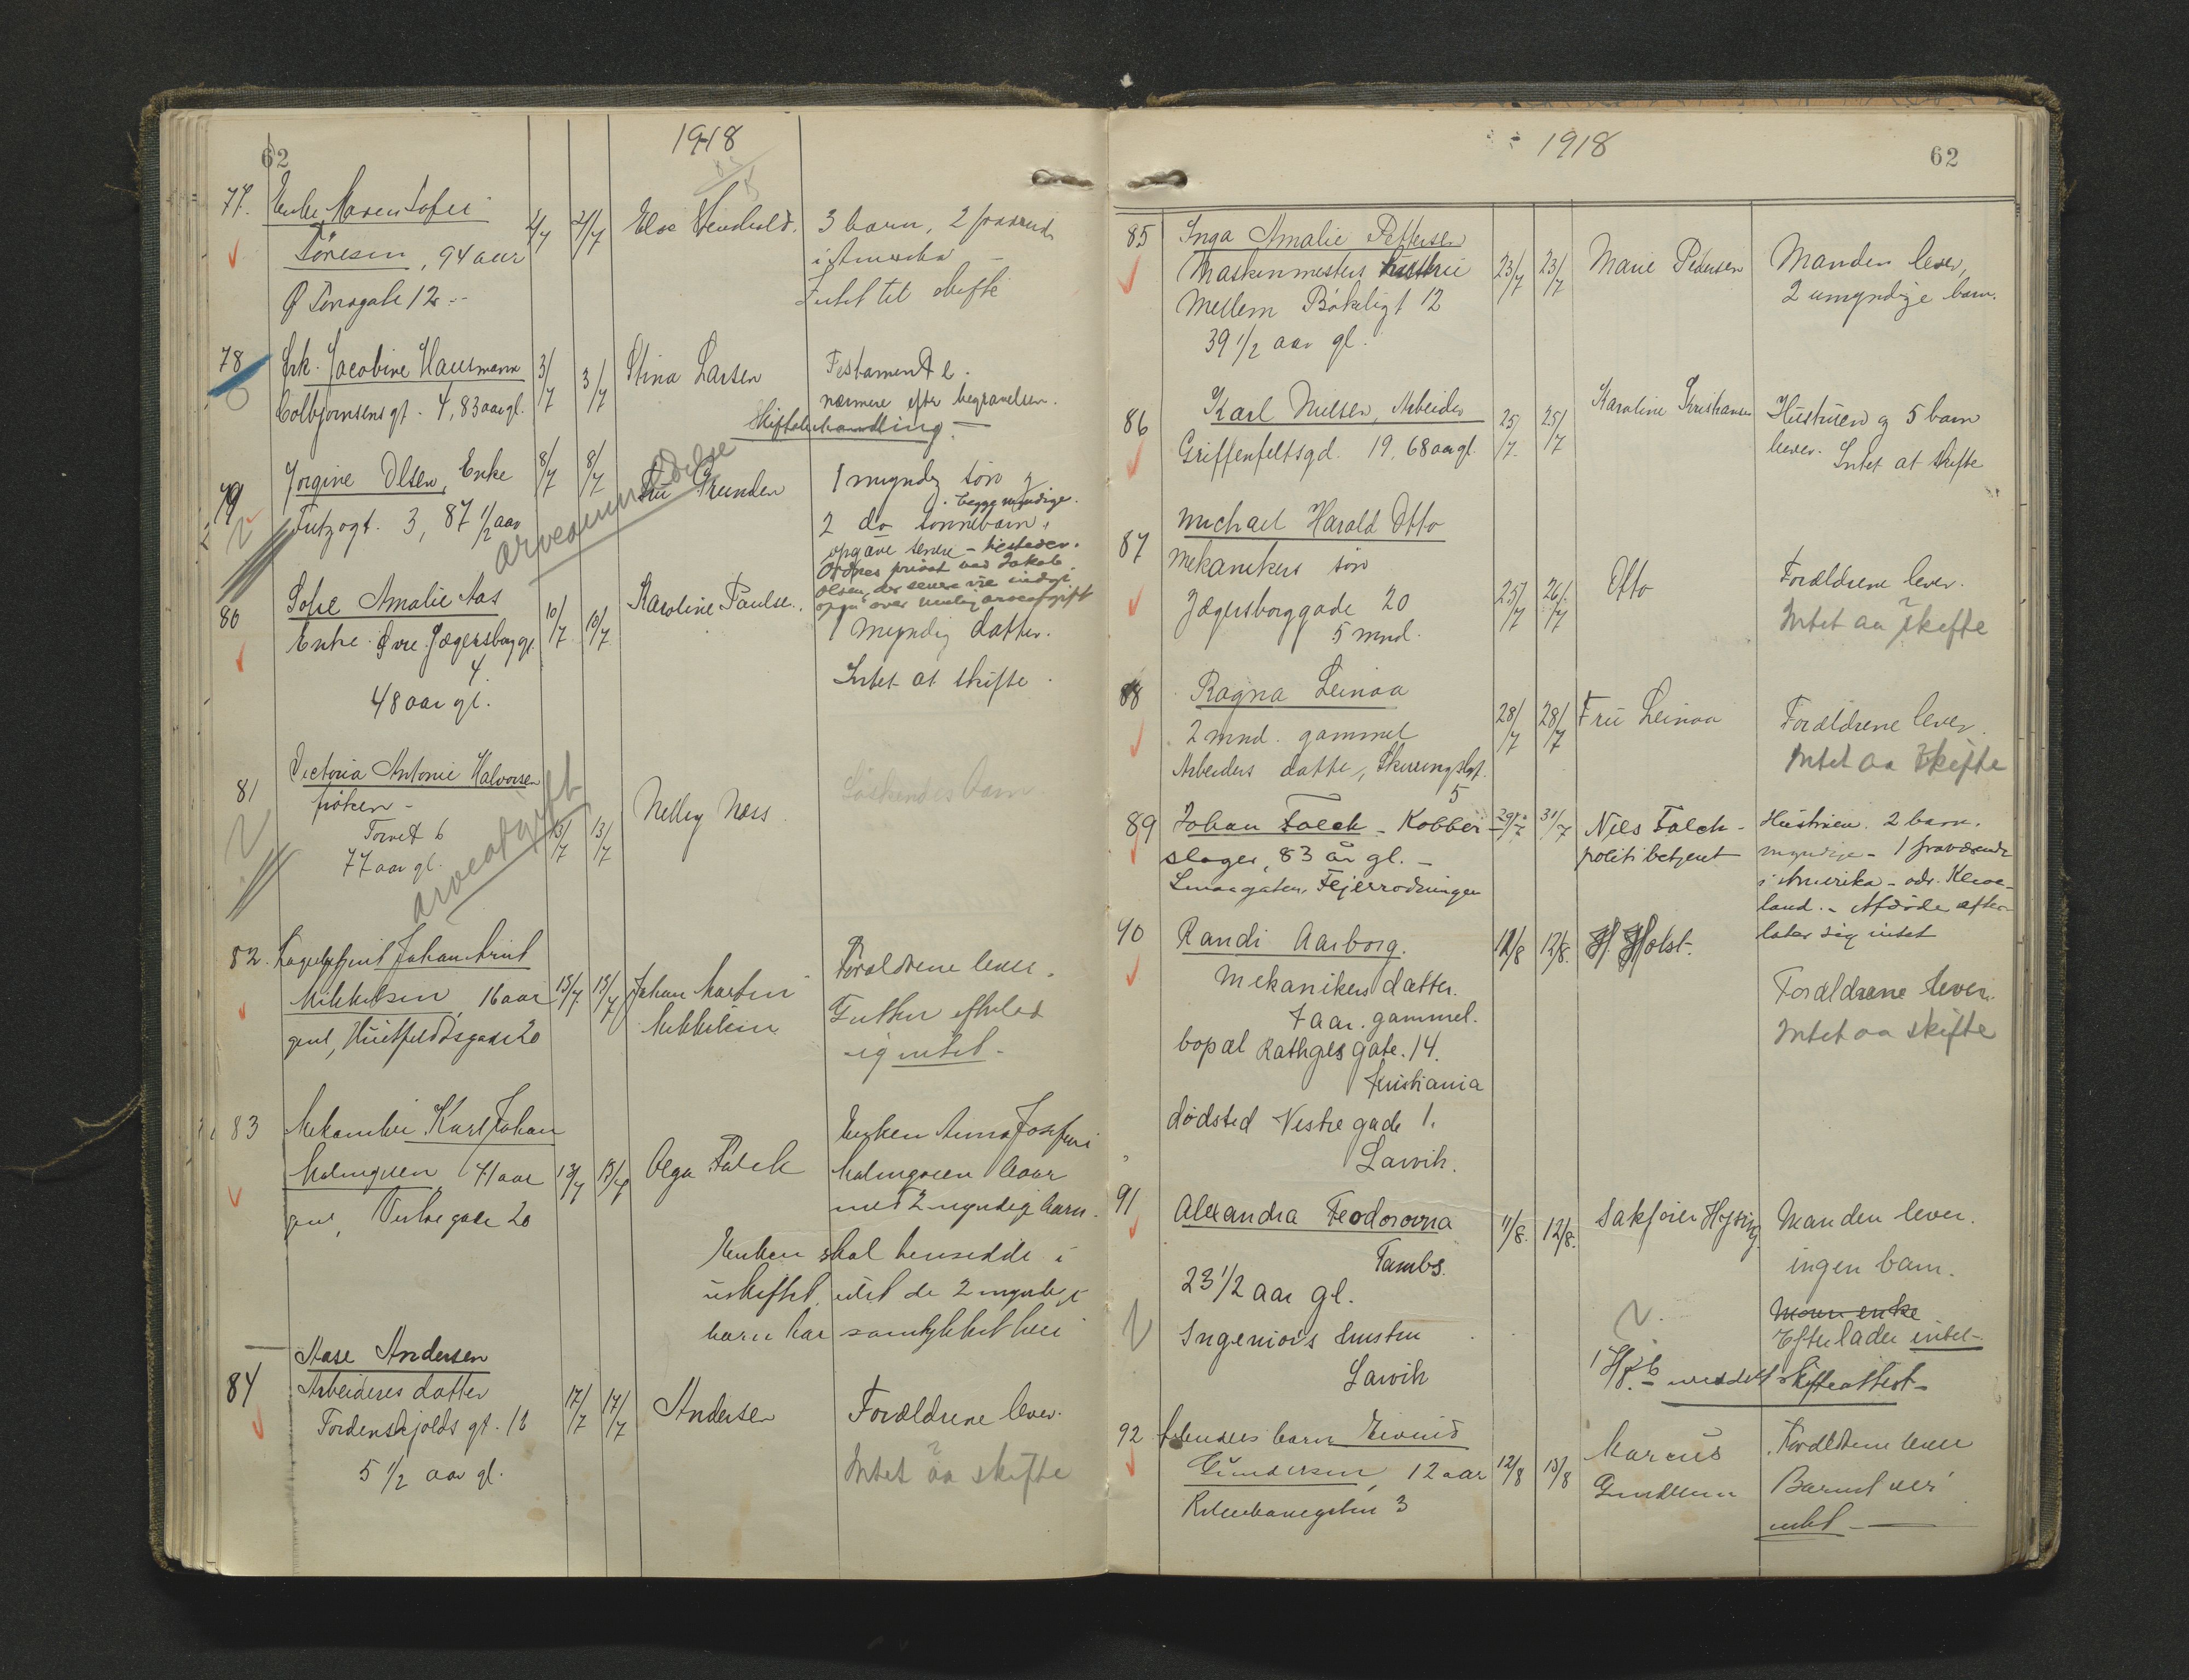 1918
62
77. Enke Maren Sofie
Sörensen, 94 aar
Ø Torvgate 12
2/7 2/7
3 barn, 2 fraværende
i Amerika -
Intet til skifte
78 Frk. Jacobine Hausmann
Colbjørnsens gt. 4, 83 aar gl.
3/7 3/7
Stina Larsen
Testamente.
nærmere efter begravelsen.
Skiftebehandling. -
79 Jorgine Olsen, Enke
3, 87 1/2 aar
8/7 8/7
Fru Grunden
arveanmeldelse
1 myndig søn og
2 do sønnebarn, begge myndige.
opgave senere -
Ordnes privat ved Jakob
Olsen, der senere vil indgi
opg. over arveafgift
80 Sofie Amalie Aas
Enke. Øvre Jægersborg gt.
4.
48 aar gl.
10/7 10/7
Karoline Paulse..
1 myndig datter.
Intet at skifte.
81 Victoria Antonie Halvorsen
frøken -
Torvet 6
77 aar gl.
13/7 13/7
Nelly Næss
arveavgift
Søskendes barn
82. Johan Arnt
Mikkelsen, 16 aar
gml, Huitfeldtsgade 20
15/7 15/7
Johan Martin
Mikkelsen
Forældrene lever.
Gutten efterlod
sig intet.
83 Mekaniker Karl Johan
Malmgreen, 41 aar
gml, Vestre gade 20
13/7 15/7
Olga Falck
Enken Anna Josefine
Malmgreen lever
med 2 myndige barn.
Enken skal hensidde i
uskiftet, idet de 2 myndige
barn har samtykket heri
84 Aase Andersen
Arbeideres datter
Tordenskjolds gt. 13
5 1/2 aar gl.
17/7 17/7
Andersen
Forældrene lever.
Intet aa skifte
1918
62
85 Inga Amalie Pettersen
Maskinmesters hustru
Mellem Bøkeligt 12
39 1/2 aar gl.
23/7 23/7
Marie Pedersen
Manden lever,
2 umyndige barn.
86 Karl Nielsen, Arbeider
Griffenfeltsgd. 19. 68 aar gl.
25/7 25/7
Karoline Kristiansen
Hustruen og 5 barn
lever. Intet at skifte
87 Michael Harald Otto
Mekanikers søn
Jægersborggade 20
5 mnd.
25/7 26/7
Otto
Forældrene lever.
Intet aa skifte
88 Ragna Leinaa
2 mnd. gammel
Arbeiders datter, Skiringslgt.
5
28/7 28/7
Fru Leinaa
Forældrene lever.
Intet aa skifte
89 Johan Falck - Kobber-
slager, 83 år gl. -
Fejerrodningen
29/7 31/7
Nils Falck -
politibetjent
Hustruen. 2 barn.
myndige - 1 fraværende
i Amerika - adr. Kleve-
land. - Afdøde efter-
later sig intet
90 Randi Aarborg.
Mekanikers datter.
7 aar. gammel.
bopæl Rathges gate. 14.
Kristiania
dødsted Vestre gade 1.
Larvik.
12/8 12/8.
H Holst.
Forældrene lever.
Intet aa skifte
91 Alexandra Feodorovna
Tambs.
23 1/2 aar gl.
Ingeniørs hustru
Larvik
11/8. 12/8.
Sakfører
Manden lever.
ingen barn.
Efterlader intet -
meddelt skifteattest -
92 barn Eivind
Gundersen, 12 aar
12/8 13/8
Marcus
Gundersen
Forældrene lever
Barnet eier
intet -